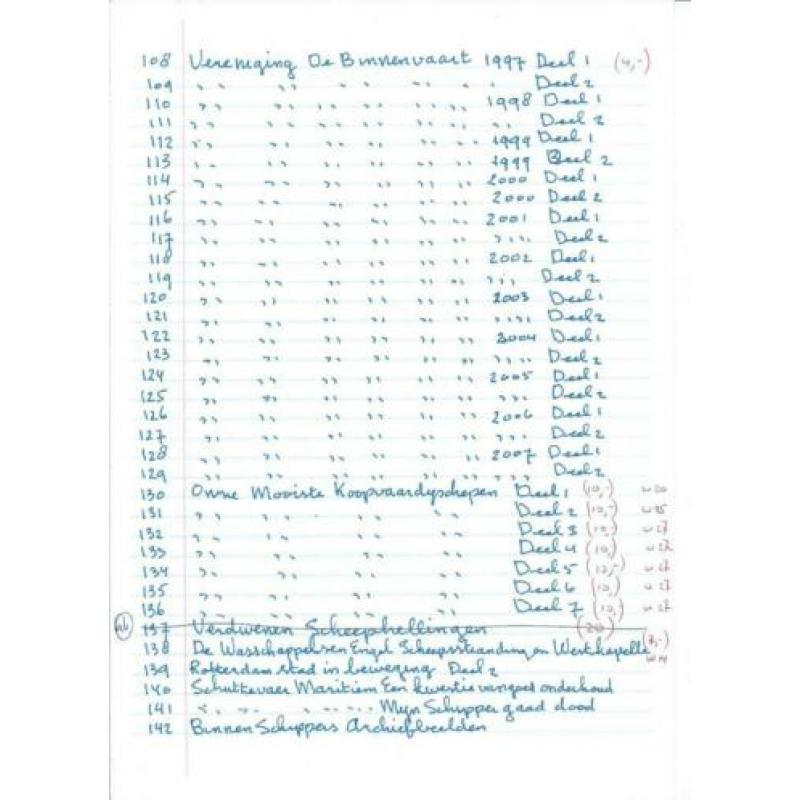 108 Vereniging De Binnenvaart 1997 Deel 1 (4,-)
109 " " " " " " " Deel 2
110 " " " " " " 1998 Deel 1
111 " " " " " " " Deel 2
112 " " " " " " 1999 Deel 1
113 " " " " " " 1999 Deel 2
114 " " " " " " 2000 Deel 1
115 " " " " " " 2000 Deel 2
116 " " " " " " 2001 Deel 1
117 " " " " " " " " Deel 2
118 " " " " " " 2002 Deel 1
119 " " " " " " " " Deel 2
120 " " " " " " 2003 Deel 1
121 " " " " " " " " Deel 2
122 " " " " " " 2004 Deel 1
123 " " " " " " " " Deel 2
124 " " " " " " 2005 Deel 1
125 " " " " " " " " Deel 2
126 " " " " " " 2006 Deel 1
127 " " " " " " " " Deel 2
128 " " " " " " 2007 Deel 1
129 " " " " " " " " Deel 2
130 Onne Mooiste Koopvaardyschepen Deel 1 (10,-)
131 " " " " Deel 2 (10,-)
132 " " " " Deel 3 (10,-)
133 " " " " Deel 4 (10,)
134 " " " " Deel 5 (12,-)
135 " " " " Deel 6 (10,)
136 " " " " Deel 7 (10,)
137 Verdwenen Scheephellingen (20)
138 De Wasschappelsen Engel Scheepsstranding en Westkapelle
139 Rotterdam stad in beweging Deel 2
140 Schuttevaer Maritiem Een kwestie van goed onderhoud
141 " " " " Myn Schipper gaad dood
142 Binnen Schippers Archiefbeelden